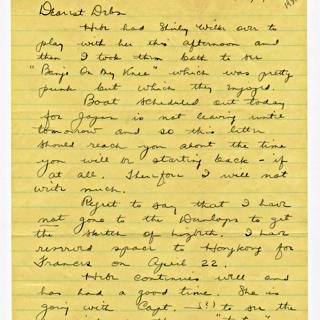 Dearest Debs
Hito had Shirley Welk over to
play with her this afternoon and
then I took them both to see
"Banjo On My Knee" which was pretty
punk but which they enjoyed.
Boat scheduled out today
for Japan is not leaving until
tomorrow and so this letter
should reach you about the time
you will be starting back - if
at all. Therefore I will not
write much.
Regret to say that I have
not gone to the Dunlaps to get
the sketch of Lizbeth. I have
reserved space to Hongkong for
Francis on April 22.
continues well and
has had a good time. She is
going with Capt. to see the